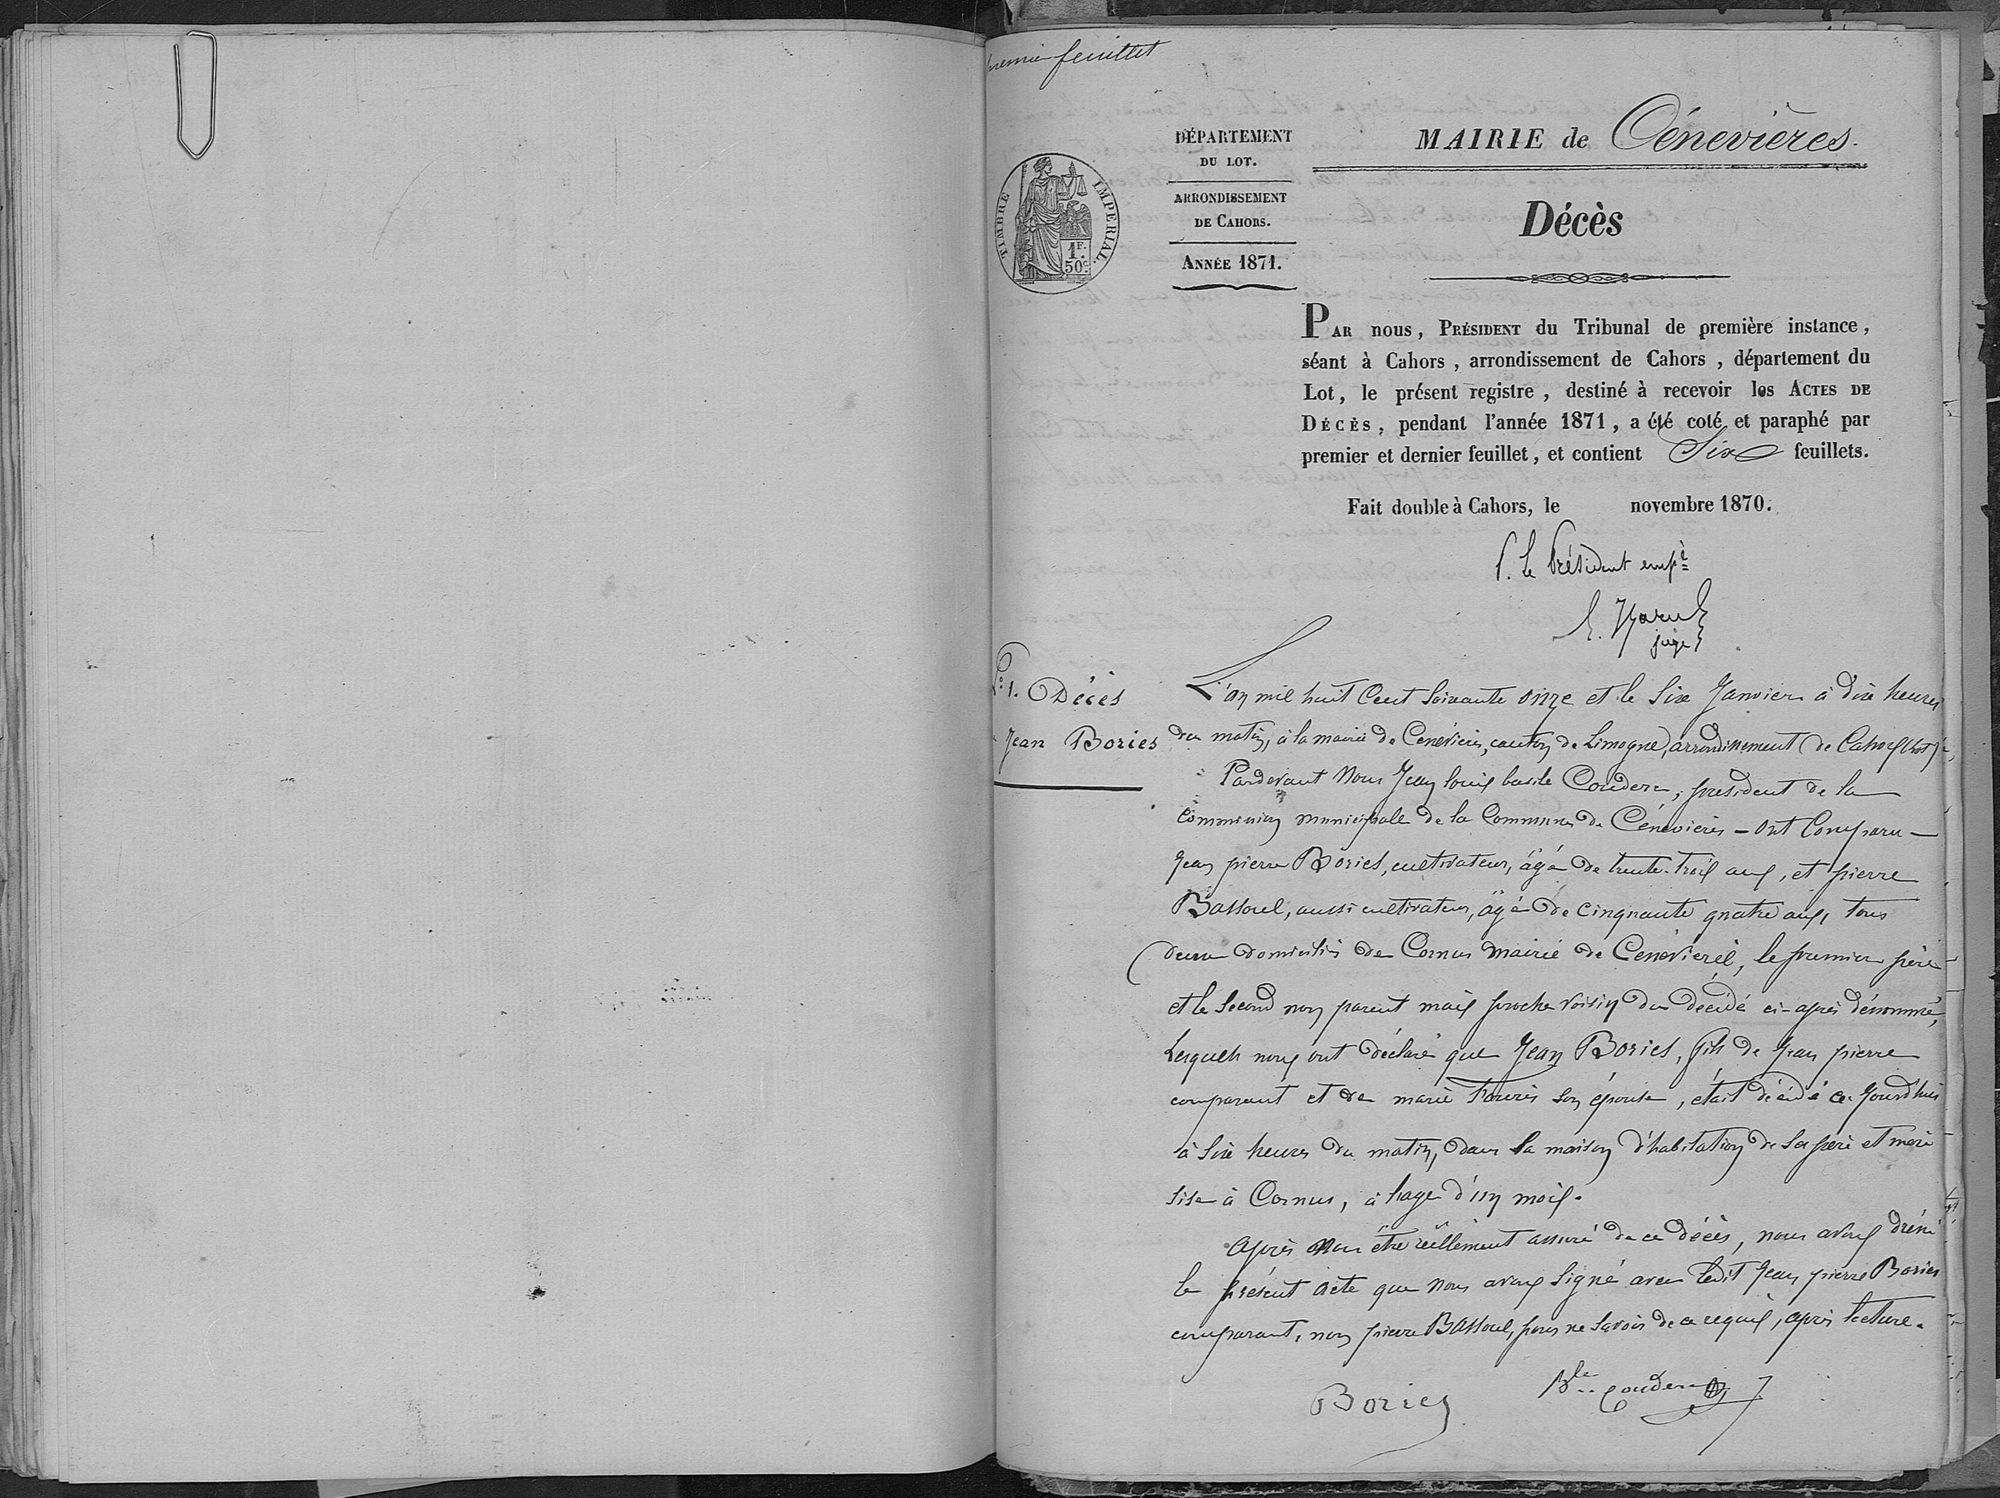 premier feuillet
DÉPARTEMENT
DU LOT.
ARRONDISSEMENT
DE CAHORS.
ANNÉE 1871.
TIMBRE IMPERIAL.
1F.
50c.
MAIRIE de Cénevières.
Décès
PAR nous, PRÉSIDENT du Tribunal de première instance,
séant à Cahors, arrondissement de Cahors, département du
Lot, le présent registre, destiné à recevoir les ACTES DE
DÉCÈS, pendant l'année 1871, a été coté et paraphé par
premier et dernier feuillet, et contient Six feuillets.
Fait double à Cahors, le novembre 1870.
P. Le Président empê
juge
1. Décès
Jean Bories
L'an mil huit Cent Soixante onze et le Six Janvier à dix heures
du matin, à la mairie de Cénevières, canton de Limogne, arrondissement de Cahors (Lot),
Pardevant Nous Jean louis basile Couderc, président de la
Commission municipale de la Commune de Cénevières – ont Comparu –
Jean pierre Bories, cultivateur, âgé de trente-trois ans, et pierre
Bassoul, aussi cultivateur, âgé de cinquante quatre ans, tous
deux domiciliés de Cornus mairie de Cénevières, le premier père
et le Second non parent mais proche voisin du décédé ci-après dénommé,
Lesquels nous ont déclaré que Jean Bories, fils de Jean pierre
comparant et de marie son épouse, était décédé ce Jourd'hui
à Six heures du matin, dans la maison d'habitation de Ses père et mère
sise à Cornus, à l'age d'un mois.
Après nous être réellement assuré de ce décès, nous avons
le présent acte que nous avons Signé avec ledit Jean pierre Bories
comparant, non pierre Bassoul, pour ne Savoir de ce requis, après lecture.
Bories
Ble Couderc